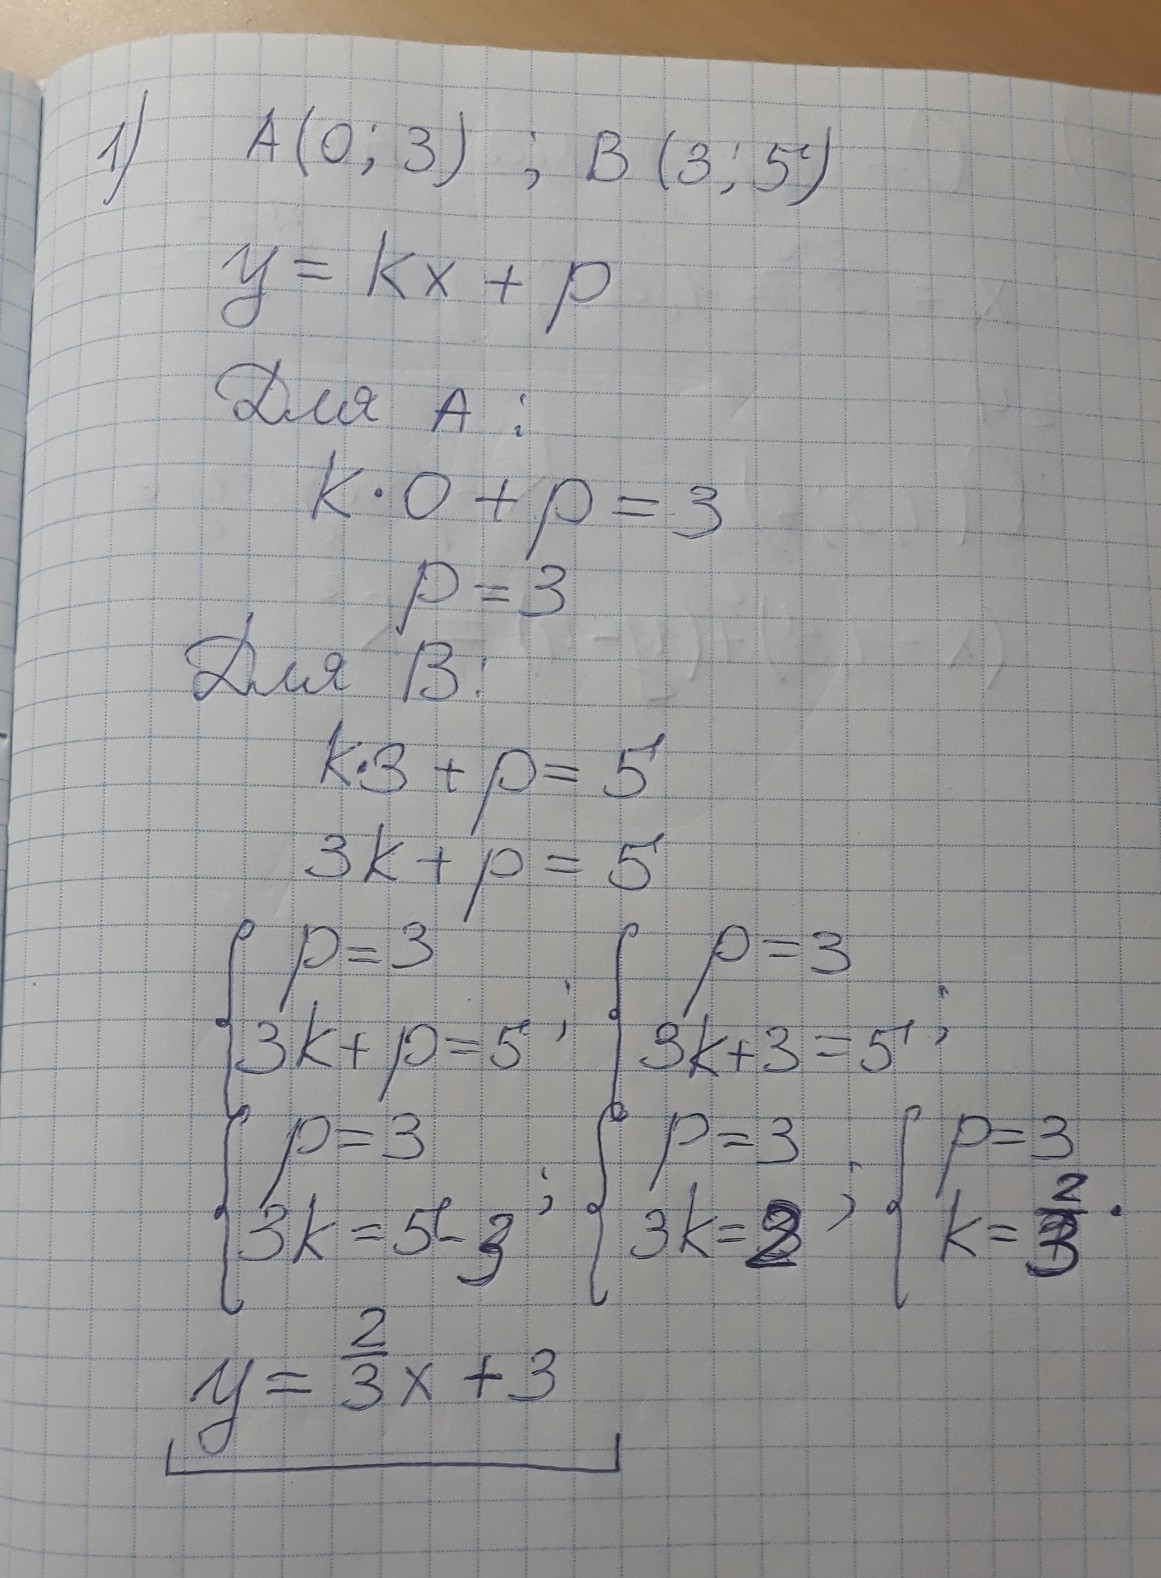 1) A(0; 3) ; B(3; 5)
y = kx + p
Для A:
k·0 + p = 3
p = 3
Для B:
k·3 + p = 5
3k + p = 5
{ p = 3 ; { p = 3 ;
3k + p = 5 3k + 3 = 5
{ p = 3 ; { p = 3 ; { p = 3
3k = 5 - 3 3k = 2 k = 2/3 .
y = 2/3 x + 3